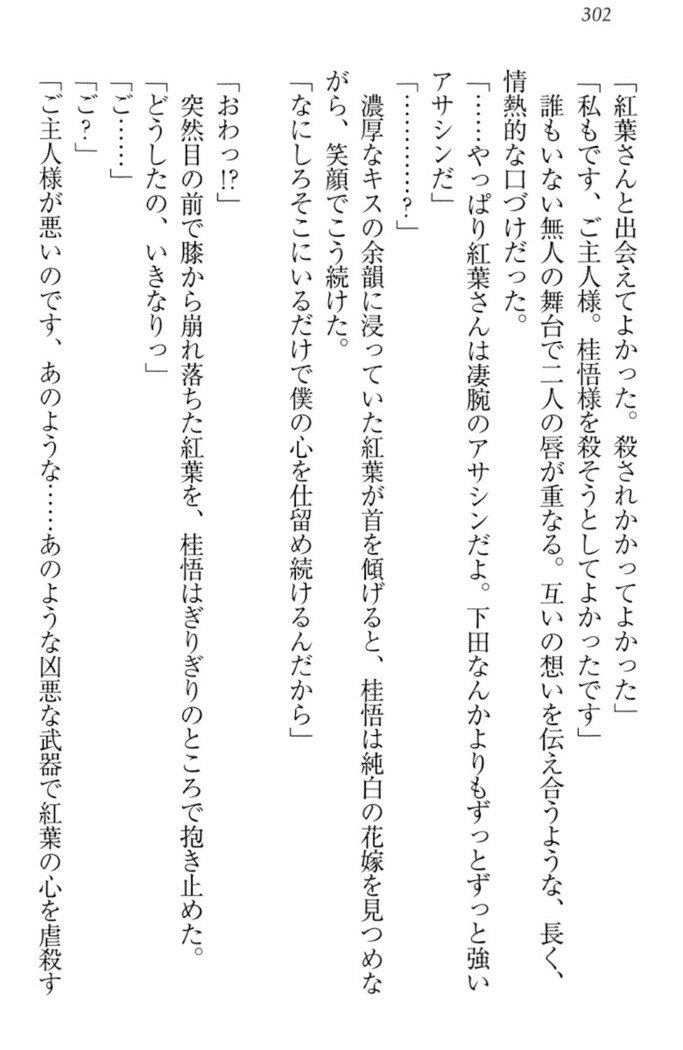 302
「紅葉さんと出会えてよかった。殺されかかってよかった」
「私もです、ご主人様。桂悟様を殺そうとしてよかったです」
　誰もいない無人の舞台で二人の唇が重なる。互いの想いを伝え合うような、長く、
情熱的な口づけだった。
「……やっぱり紅葉さんは凄腕のアサシンだよ。下田なんかよりもずっとずっと強い
アサシンだ」
「…………?」
　濃厚なキスの余韻に浸っていた紅葉が首を傾げると、桂悟は純白の花嫁を見つめな
がら、笑顔でこう続けた。
「なにしろそこにいるだけで僕の心を仕留め続けるんだから」
「おわっ!?」
　突然目の前で膝から崩れ落ちた紅葉を、桂悟はぎりぎりのところで抱き止めた。
「どうしたの、いきなりっ」
「ご……」
「ご?」
「ご主人様が悪いのです、あのような……あのような凶悪な武器で紅葉の心を虐殺す